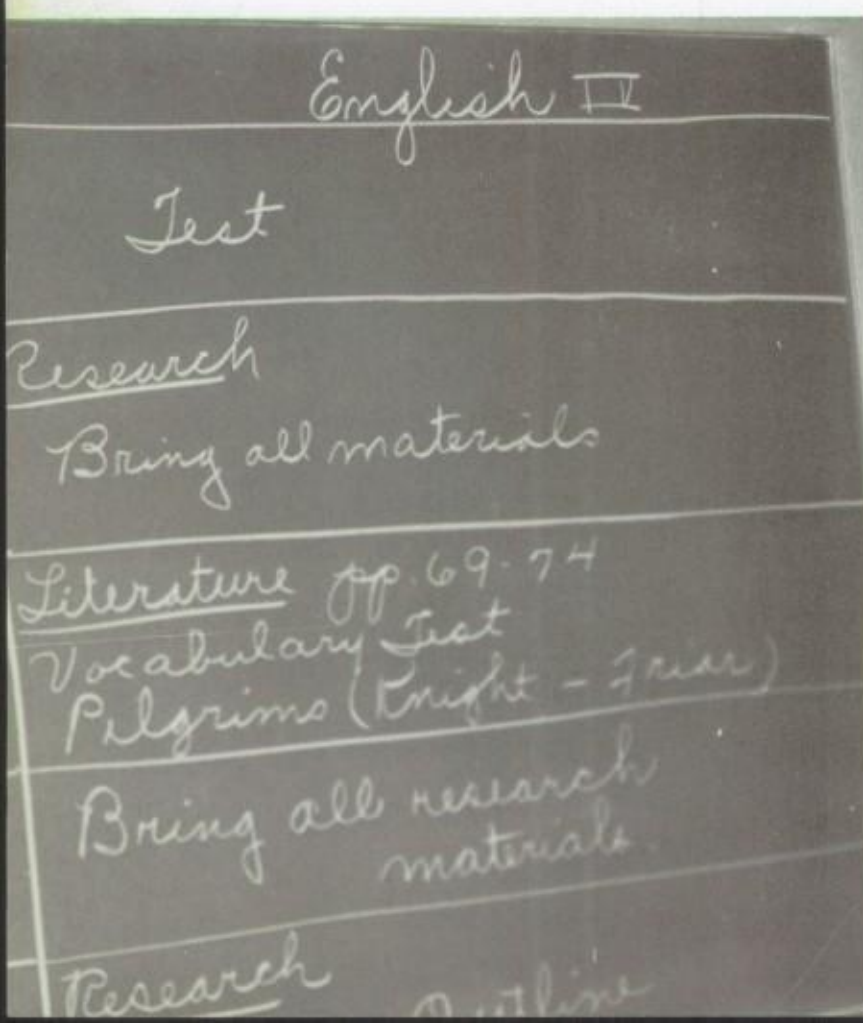 English IV
Test
Research
Bring all materials
Literature pp. 69-74
Vocabulary Test
Pilgrims (Knight - Friar)
Bring all research
materials.
Research
Outline